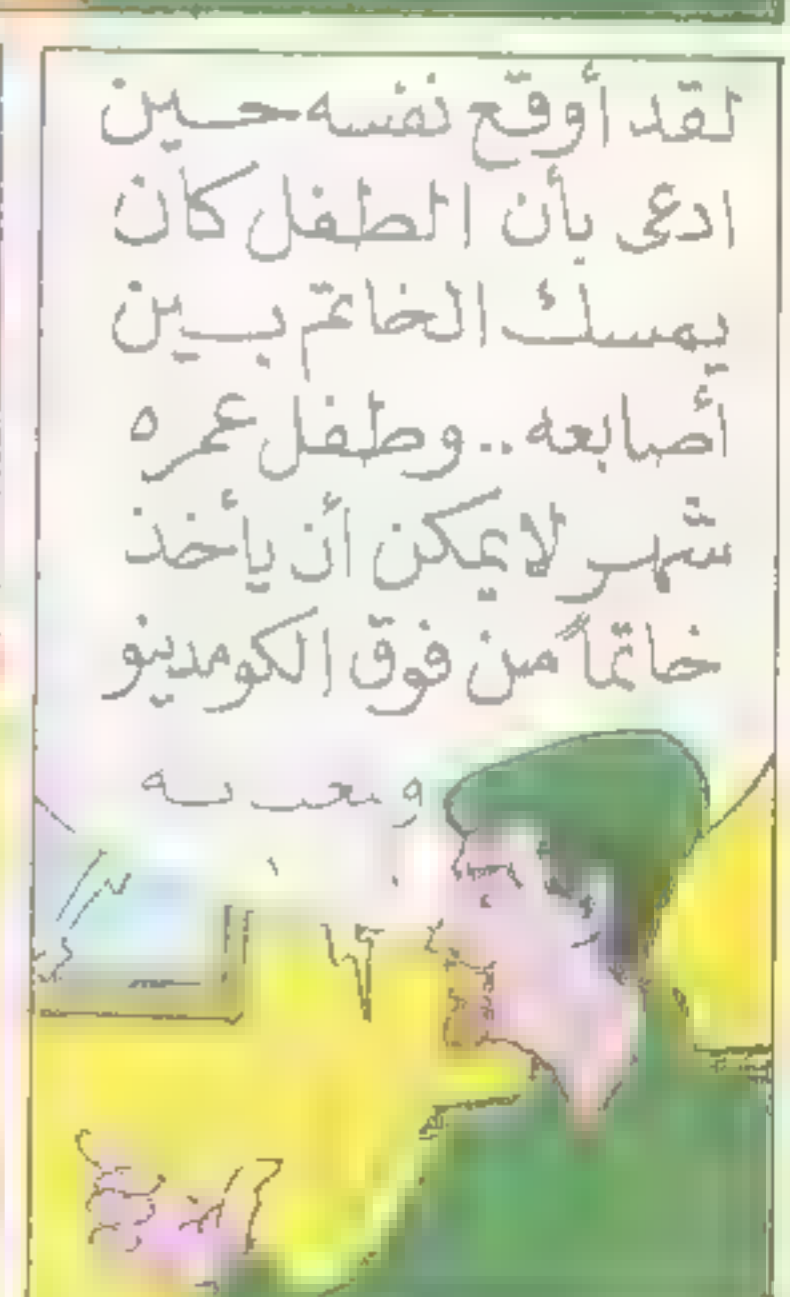 لقد أوقع نفسه حين
ادعى بأن الطفل كان
يمسك الخاتم بين
أصابعه .. وطفل عمره
شهر لا يمكن أن يأخذ
خاتماً من فوق الكومدينو